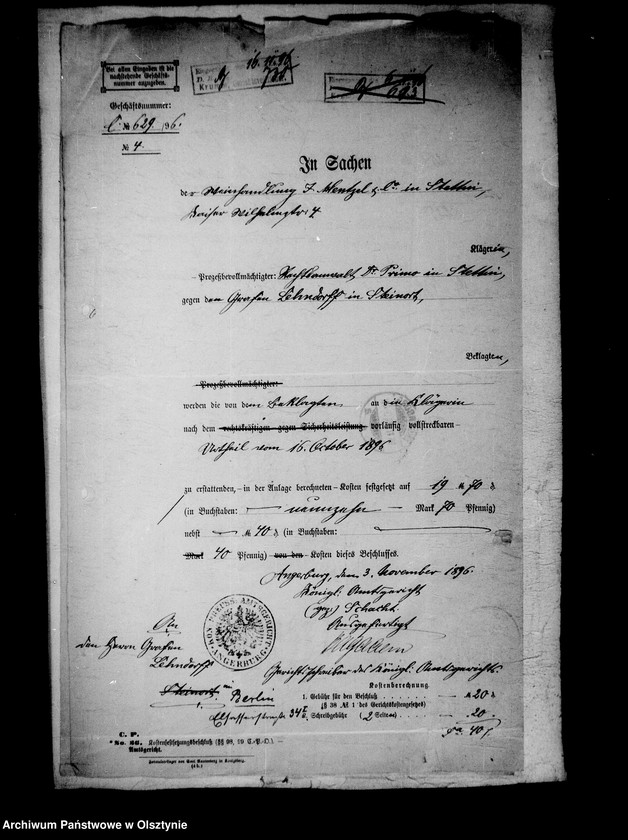 Bei allen Eingaben ist die
nachstehende Geschäfts-
nummer anzugeben.
16. 11. 96
Geschäftsnummer:
C. № 629. 96.
№ 4.
In Sachen
der Weinhandlung J. Mentzel & Co. in Stettin,
Kaiser Wilhelmstr. 4
Klägerin,
– Prozeßbevollmächtigter: Rechtsanwalt Dr. Primo in Stettin,
gegen den Grafen Lehndorff in Steinort,
Beklagten,
– Prozeßbevollmächtigter:
werden die von dem Beklagten an die Klägerin
nach dem rechtskräftigen gegen Sicherheitsleistung vorläufig vollstreckbaren –
Urtheil vom 16. October 1896
zu erstattenden, – in der Anlage berechneten – Kosten festgesetzt auf 19 M 70 ₰
(in Buchstaben: – neunzehn – Mark 70 Pfennig)
nebst – M 40 ₰ (in Buchstaben:
Mark 40 Pfennig) von den Kosten dieses Beschlusses.
Angerburg, den 3. November 1896.
Königl. Amtsgericht
(gez.) Schacht.
Ausgefertigt
Gerichtsschreiber des Königl. Amtsgerichts.
KÖN. PREUSS. AMTSGERICHT
ANGERBURG
An
den Herrn Grafen
Lehndorff
Steinort in Berlin
Elsasserstraße 34
Kostenberechnung.
1. Gebühr für den Beschluß – M 20 ₰
(§ 38 № 1 des Gerichtskostengesetzes)
2. Schreibgebühr (2 Seiten) – 20.
Sa. 40 ₰
C. P.
*No. 66. Kostenfestsetzungsbeschluß (§§ 98, 99 C.-P.-O.) –
Amtsgericht.
Archiwum Państwowe w Olsztynie